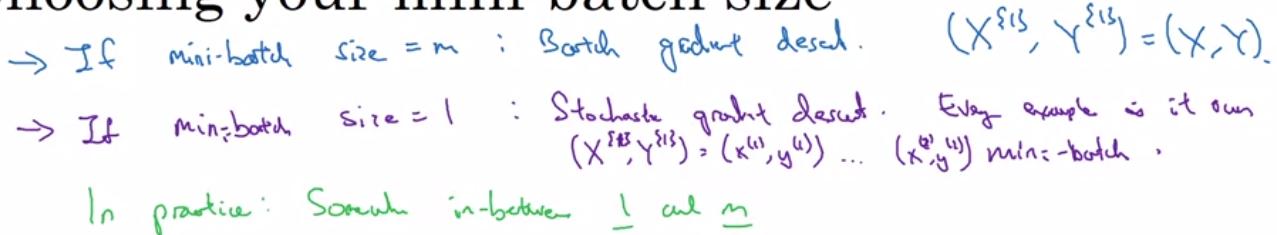 choosing your mini-batch size
→ If mini-batch size = m : Batch gradient descent. (X^{1}, Y^{1}) = (X, Y).
→ If mini-batch size = 1 : Stochastic gradient descent. Every example is it own
(X^{1}, Y^{1}) = (x^(1), y^(1)) ... (x^(2), y^(2)) mini-batch.
In practice: Somewhere in-between 1 and m